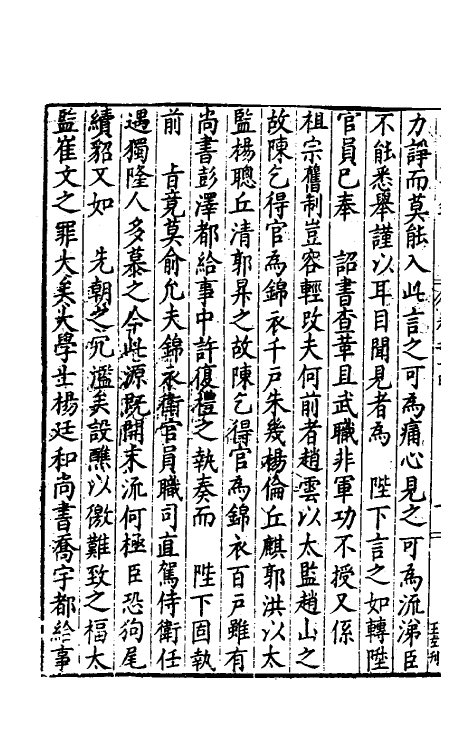 力諍而莫能入此言之可為痛心見之可為流涕臣
不能悉舉謹以耳目聞見者為　陛下言之如轉陞
官員已奉　詔書查革且武職非軍功不授又係
祖宗舊制豈容輕改夫何前者趙雲以太監趙山之
故陳乞得官為錦衣千戶朱幾楊倫丘麒郭洪以太
監楊聰丘清郭昇之故陳乞得官為錦衣百戶雖有
尚書彭澤都給事中許復禮之執奏而　陛下固執
前　旨竟莫俞允夫錦衣衛官員職司直駕侍衛任
遇獨隆人多慕之今此源既開末流何極臣恐狗尾
續貂又如　先朝之冗濫矣設醮以徼難致之福太
監崔文之罪大矣大學士楊廷和尚書喬宇都給事